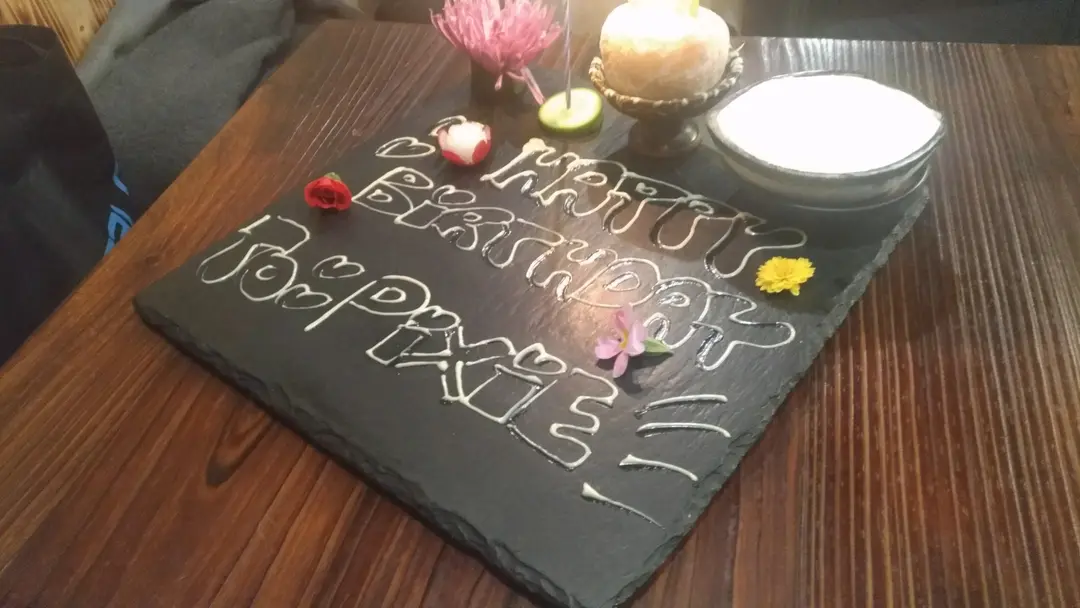 HAPPY
BiRTHDAY
To PiXiE